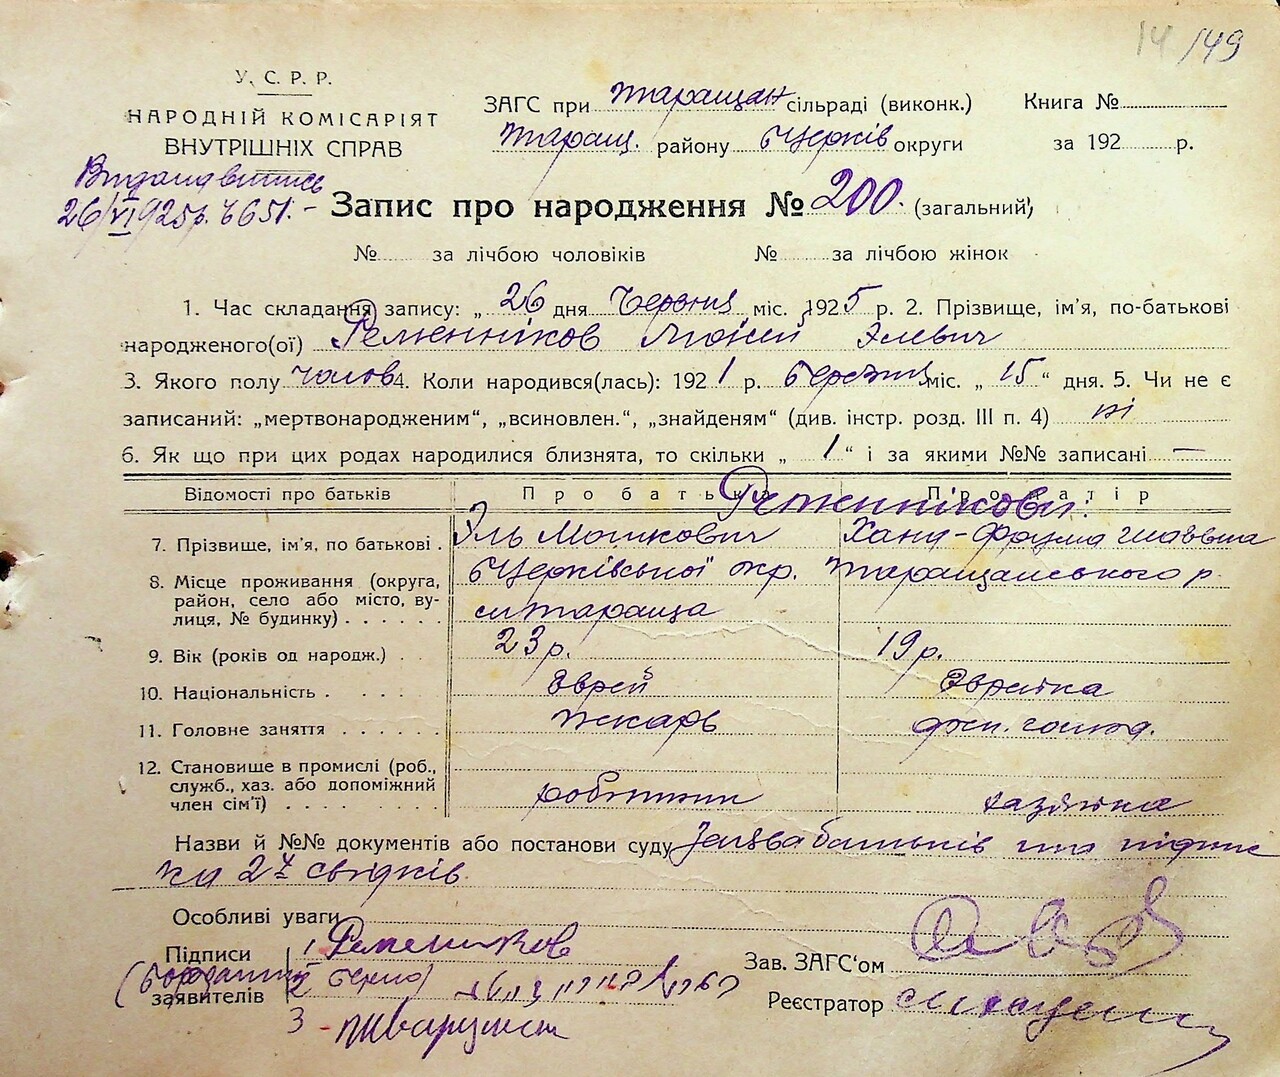 14/149
У. С. Р. Р.
НАРОДНІЙ КОМІСАРІЯТ
ВНУТРІШНІХ СПРАВ
ЗАГС при Таращан сільраді (виконк.)
Таращ. району БЦерків округи
Книга №
за 192 р.
26/VI 925р. 6651.-
Запис про народження № 200. (загальний)
№ за лічбою чоловіків № за лічбою жінок
1. Час складання запису: „ 26 дня Червня міс. 1925 р. 2. Прізвище, ім'я, по-батькові
народженого(ої) Ременніков Мойсей Элевич
3. Якого полу чолов 4. Коли народився(лась): 1921 р. березня міс. „ 15 “ дня. 5. Чи не є
записаний: „мертвонародженим“, „всиновлен.“, „знайденям“ (див. інстр. розд. III п. 4) ні
6. Як що при цих родах народилися близнята, то скільки „ 1 “ і за якими №№ записані —
Відомості про батьків Про батька Про матір
Ременнікови:
7. Прізвище, ім'я, по батькові . Эль Мошкович Хана-Фрума
8. Місце проживання (округа, БЦерківської окр. Таращанського р.
район, село або місто, ву-
лиця, № будинку) . . . . . . м Тараща
9. Вік (років од народж.) . . 23 р. 19 р.
10. Національність . . . . . Єврей Єврейка
11. Головне заняття . . . . . . пекарь дом. господ.
12. Становище в промислі (роб.,
служб., хаз. або допоміжний
член сім'ї) . . . . . . . . робітник хазяйка
Назви й №№ документів або постанови суду Заява батьків та підпис
ка 2х свідків.
Особливі уваги
Підписи 1 Ременніков
заявителів 2
3
Зав. ЗАГС'ом
Реєстратор